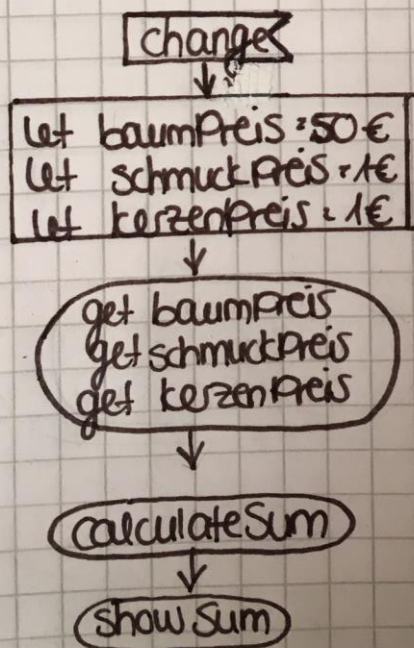 change
let baumPreis = 50 €
let schmuckPreis = 1€
let kerzenpreis = 1€
get baumpreis
get schmuckPreis
get kerzenpreis
calculateSum
show Sum